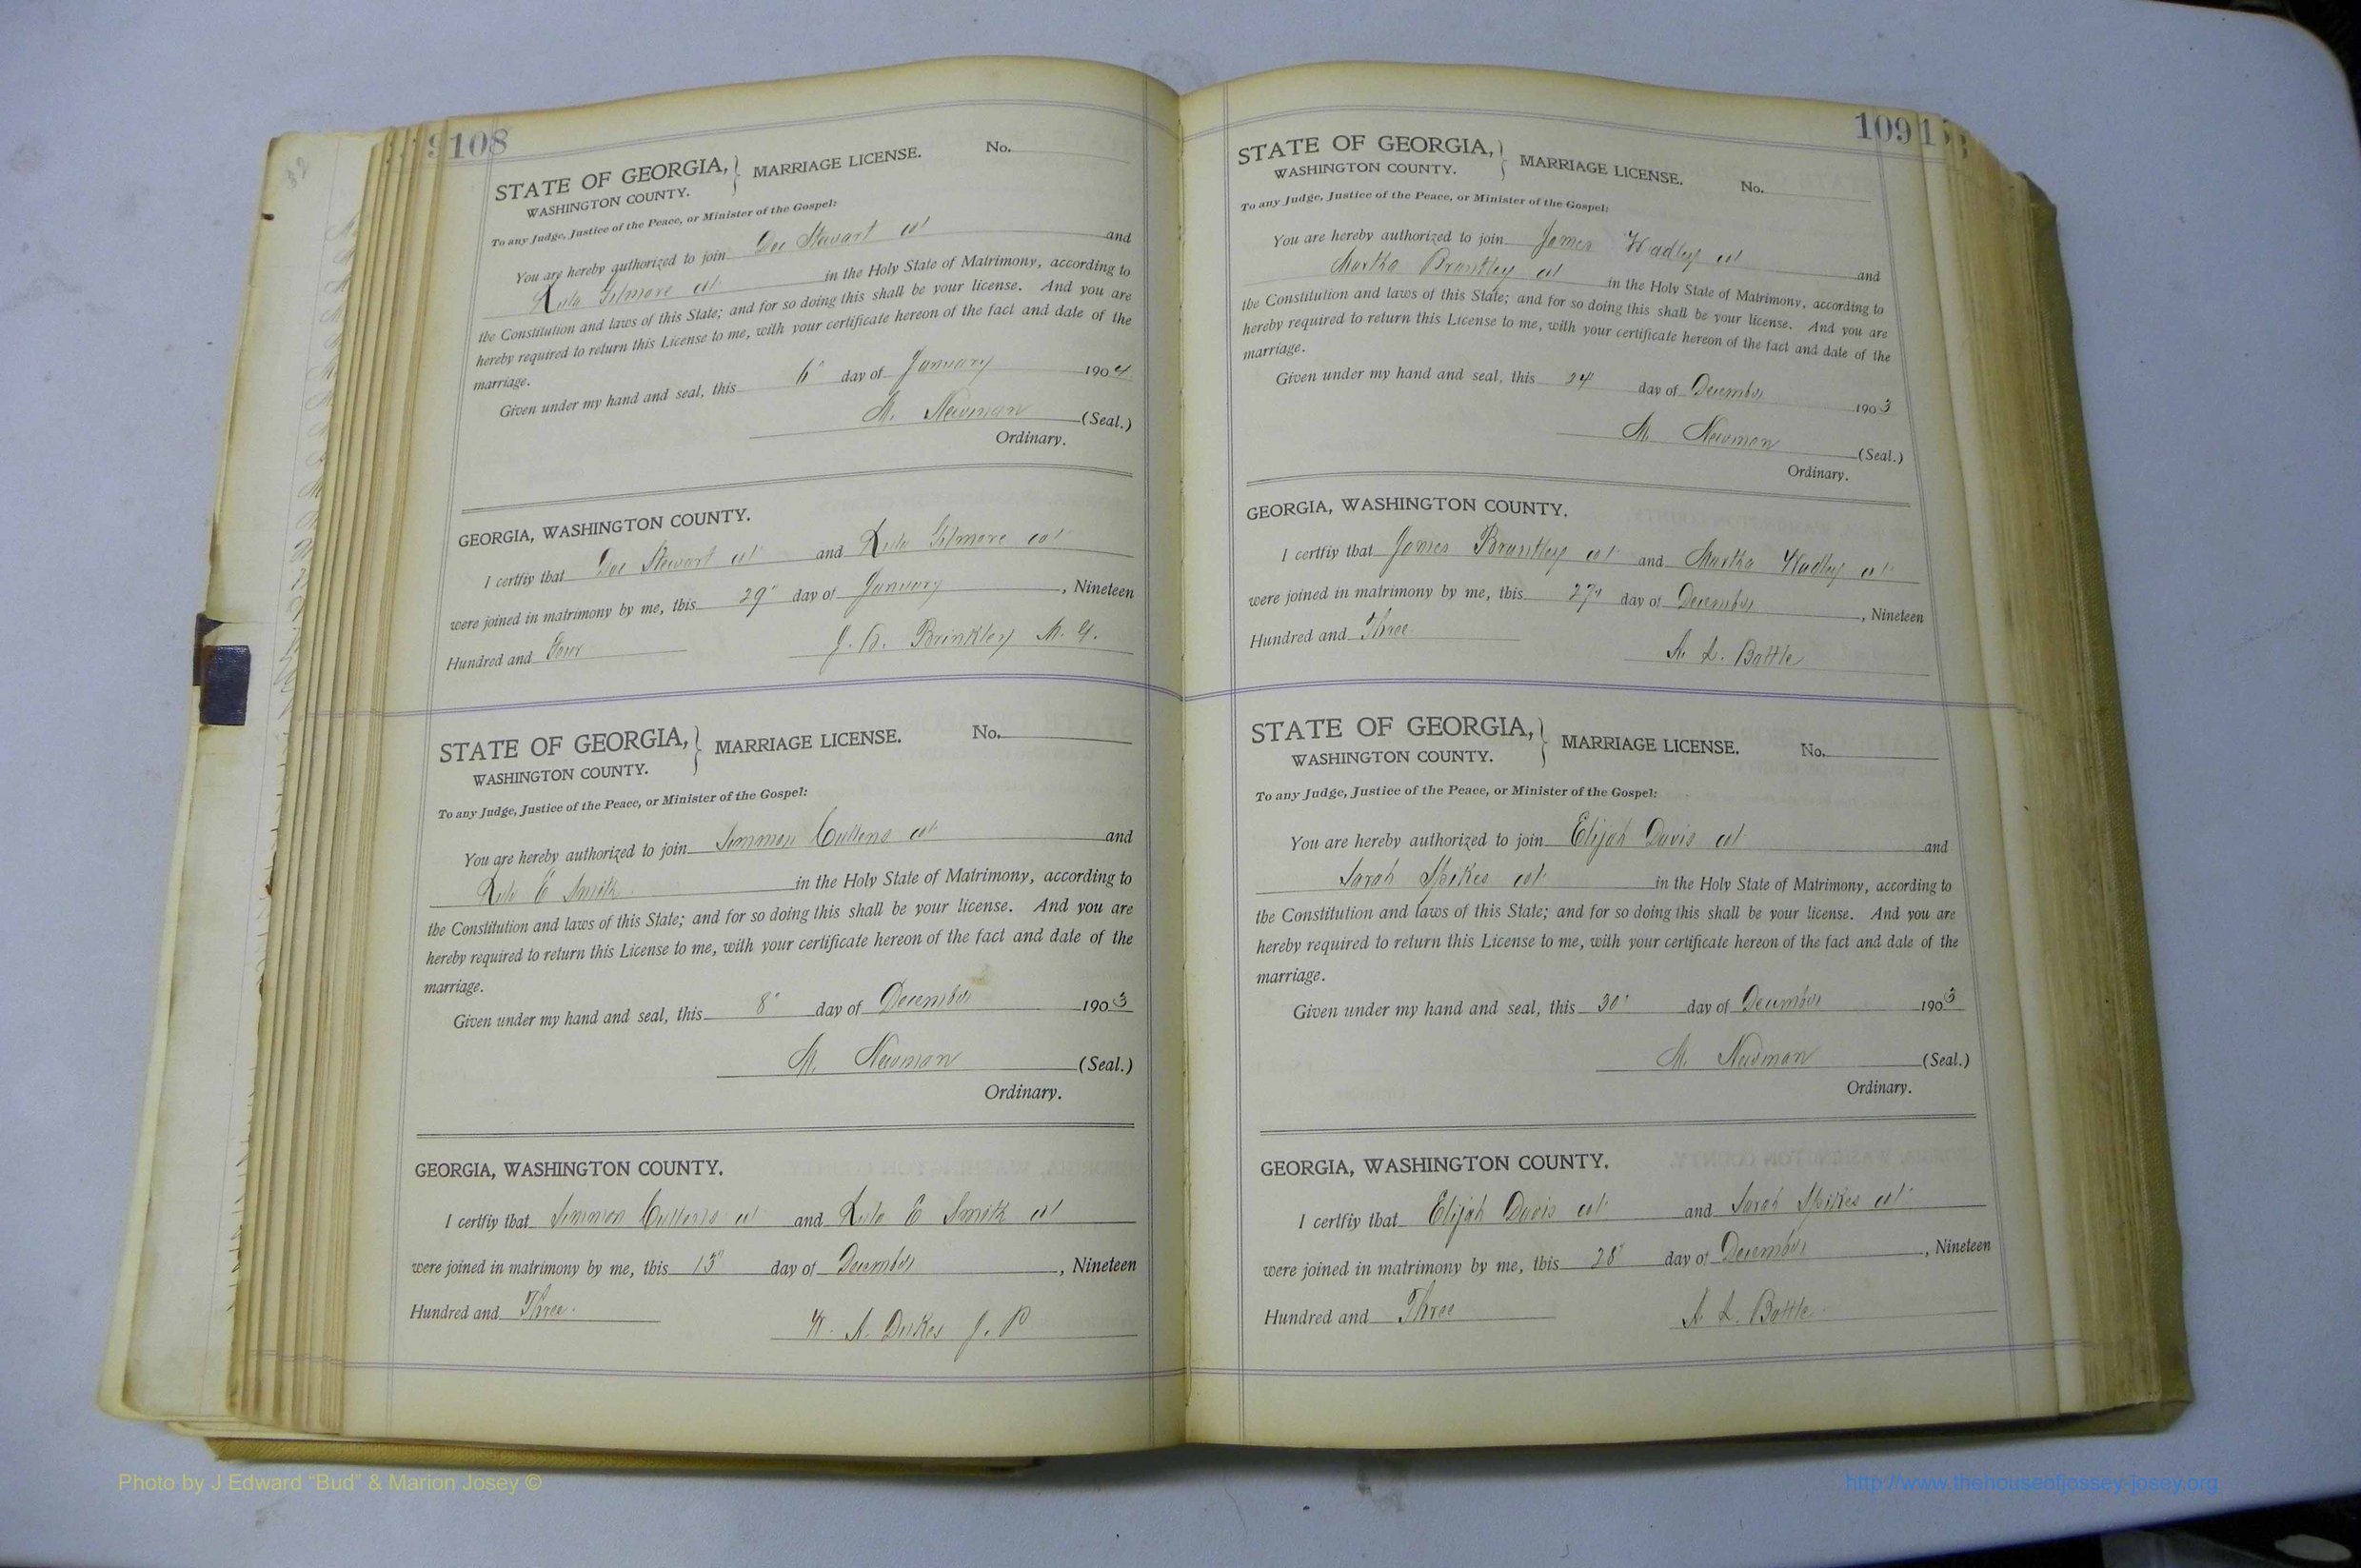 108
STATE OF GEORGIA, } MARRIAGE LICENSE. No.
WASHINGTON COUNTY.
To any Judge, Justice of the Peace, or Minister of the Gospel:
You are hereby authorized to join Doc Stewart col and
Lula Gilmore col in the Holy State of Matrimony, according to
the Constitution and laws of this State; and for so doing this shall be your license. And you are
hereby required to return this License to me, with your certificate hereon of the fact and date of the
marriage.
Given under my hand and seal, this 6" day of January 1904
M. Newman (Seal.)
Ordinary.
GEORGIA, WASHINGTON COUNTY.
I certfiy that Doc Stewart col and Lula Gilmore col
were joined in matrimony by me, this 29" day of January, Nineteen
Hundred and Four
J. Brinkley M. G.
STATE OF GEORGIA, } MARRIAGE LICENSE. No.
WASHINGTON COUNTY.
To any Judge, Justice of the Peace, or Minister of the Gospel:
You are hereby authorized to join Simmon Cullens col and
Lula E Smith in the Holy State of Matrimony, according to
the Constitution and laws of this State; and for so doing this shall be your license. And you are
hereby required to return this License to me, with your certificate hereon of the fact and date of the
marriage.
Given under my hand and seal, this 8" day of December 1903
M. Newman (Seal.)
Ordinary.
GEORGIA, WASHINGTON COUNTY.
I certfiy that Simmon Cullens col and Lula E Smith col
were joined in matrimony by me, this 13" day of December, Nineteen
Hundred and Three.
W. A. Dukes J. P
109
STATE OF GEORGIA, } MARRIAGE LICENSE. No.
WASHINGTON COUNTY.
To any Judge, Justice of the Peace, or Minister of the Gospel:
You are hereby authorized to join James Wadley col and
Martha Brantley col in the Holy State of Matrimony, according to
the Constitution and laws of this State; and for so doing this shall be your license. And you are
hereby required to return this License to me, with your certificate hereon of the fact and date of the
marriage.
Given under my hand and seal, this 24" day of December 1903
M Newman (Seal.)
Ordinary.
GEORGIA, WASHINGTON COUNTY.
I certfiy that James Brantley col and Martha Wadley col
were joined in matrimony by me, this 27" day of December, Nineteen
Hundred and Three
A. L. Battle
STATE OF GEORGIA, } MARRIAGE LICENSE. No.
WASHINGTON COUNTY.
To any Judge, Justice of the Peace, or Minister of the Gospel:
You are hereby authorized to join Elijah Davis col and
Sarah Spikes col in the Holy State of Matrimony, according to
the Constitution and laws of this State; and for so doing this shall be your license. And you are
hereby required to return this License to me, with your certificate hereon of the fact and date of the
marriage.
Given under my hand and seal, this 30" day of December 1903
M. Newman (Seal.)
Ordinary.
GEORGIA, WASHINGTON COUNTY.
I certfiy that Elijah Davis col and Sarah Spikes col
were joined in matrimony by me, this 28" day of December, Nineteen
Hundred and Three
A. L. Battle
Photo by J Edward "Bud" & Marion Josey ©
http://www.thehouseofjossey-josey.org